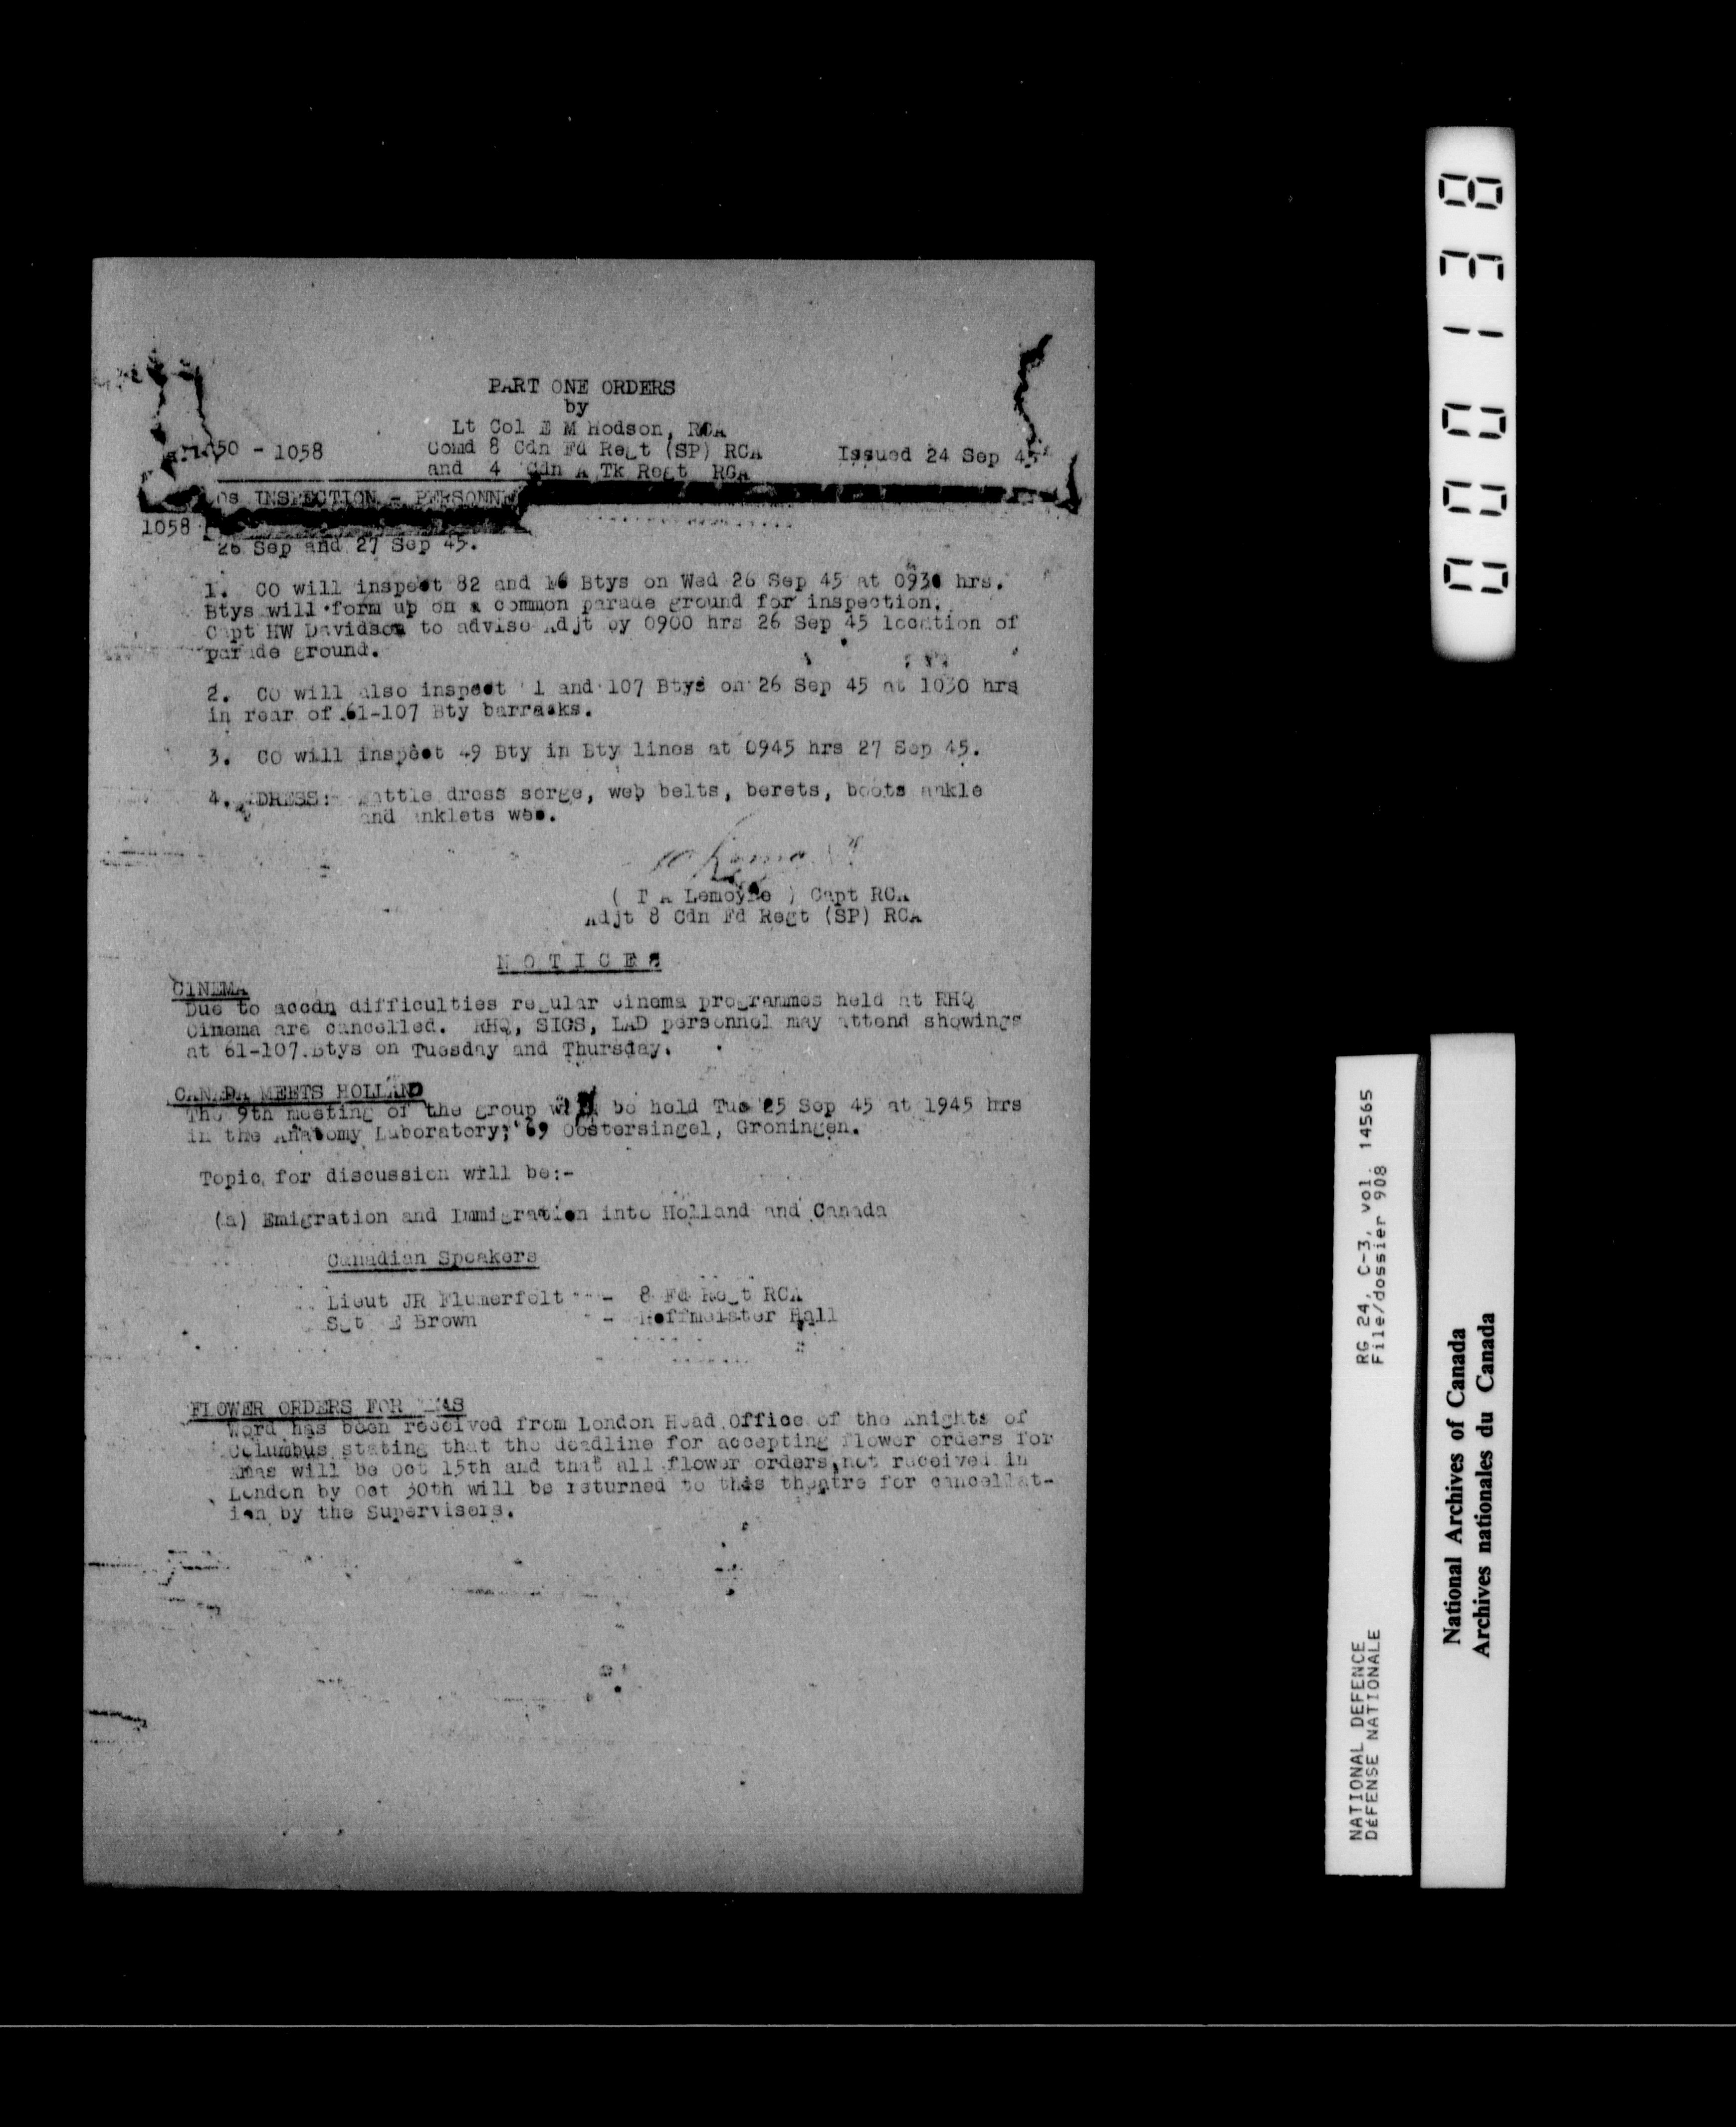 PART ONE ORDERS
by
Lt Col E M Hodson, RCA
50 - 1058 Comd 8 Cdn Fd Regt (SP) RCA Issued 24 Sep 45
and 4 Cdn A Tk Regt RCA
INSPECTION - PERSONNEL
1058
26 Sep and 27 Sep 45.
1. CO will inspect 82 and 16 Btys on Wed 26 Sep 45 at 0930 hrs.
Btys will form up on a common parade ground for inspection.
Capt HW Davidson to advise Adjt by 0900 hrs 26 Sep 45 location of
parade ground.
2. CO will also inspect 1 and 107 Btys on 26 Sep 45 at 1030 hrs
in rear of 61-107 Bty barracks.
3. CO will inspect 49 Bty in Bty lines at 0945 hrs 27 Sep 45.
4. DRESS: Battle dress serge, web belts, berets, boots ankle
and anklets web.
( Lemoyne ) Capt RCA
Adjt 8 Cdn Fd Regt (SP) RCA
N O T I C E S
CINEMA
Due to accdn difficulties regular cinema programmes held at RHQ
Cimema are cancelled. RHQ, SIGS, LAD personnel may attend showings
at 61-107 Btys on Tuesday and Thursday.
CANADA MEETS HOLLAND
The 9th meeting of the group will be held Tue 25 Sep 45 at 1945 hrs
in the Anatomy Laboratory, 69 Oostersingel, Groningen.
Topic for discussion will be:-
(a) Emigration and Immigration into Holland and Canada
Canadian Speakers
Lieut JR Flumerfelt - 8 Fd Regt RCA
Sgt E Brown - Hoffmeister Hall
FLOWER ORDERS FOR XMAS
Word has been received from London Head Office of the Knights of
Columbus stating that the deadline for accepting flower orders for
Xmas will be Oct 15th and that all flower orders not received in
London by Oct 30th will be returned to this theatre for cancellat-
ion by the Supervisors.
0000138
RG 24, C-3, vol. 14565
File/dossier 908
NATIONAL DEFENCE
DÉFENSE NATIONALE
National Archives of Canada
Archives nationales du Canada